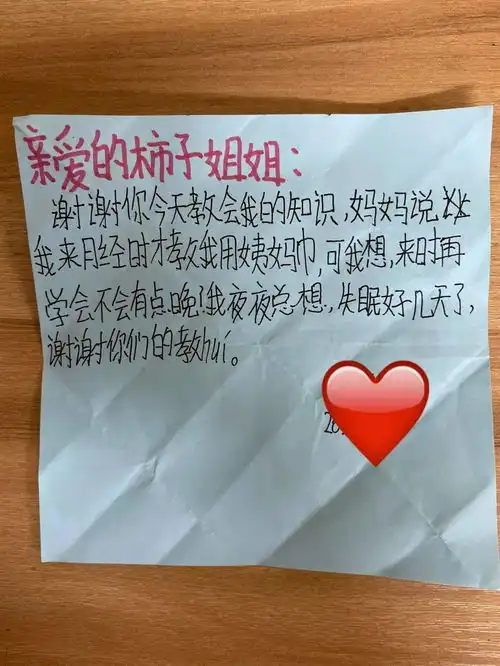 亲爱的柿子姐姐：
谢谢你今天教会我的知识，妈妈说，
我来月经时才教我用姨妈巾，可我想，来时再
学会不会有点晚？我夜夜总想，失眠好几天了，
谢谢你们的教huí。